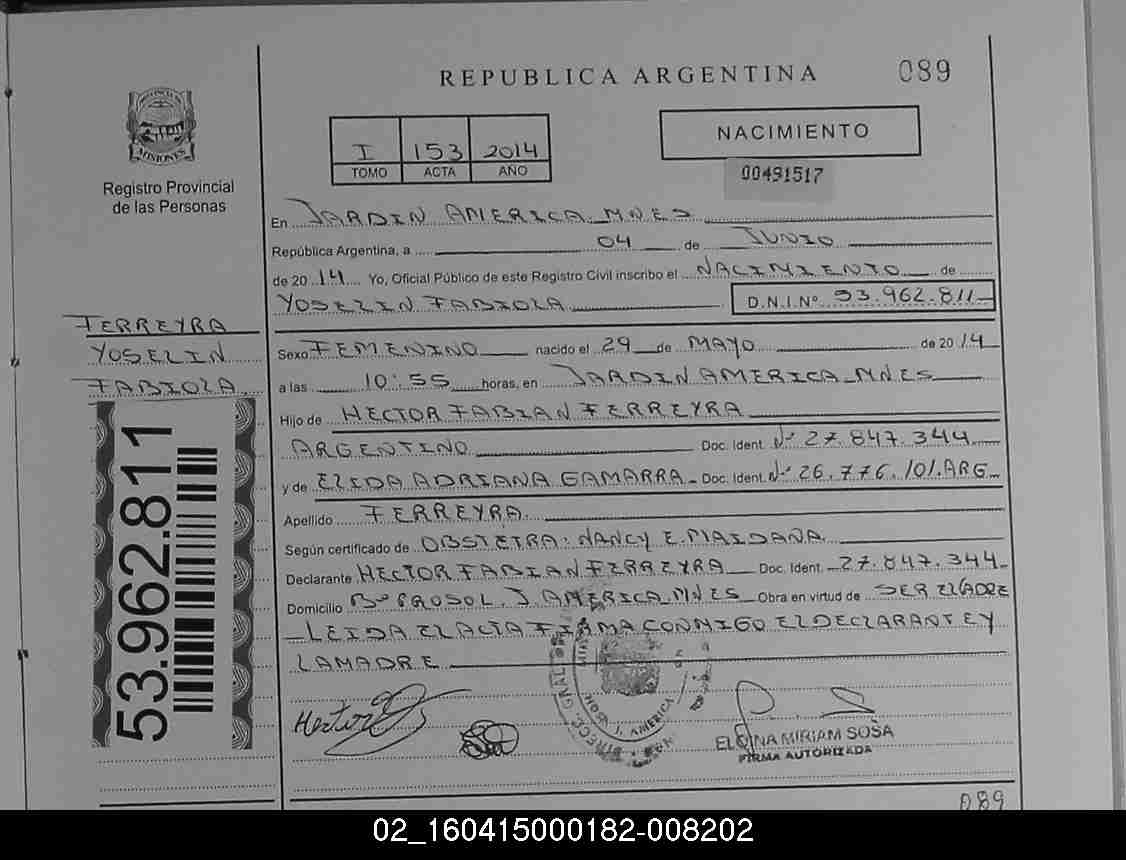 REPUBLICA ARGENTINA 089
PROVINCIA DE
MISIONES
Registro Provincial
de las Personas
I 153 2014
TOMO ACTA AÑO
NACIMIENTO
00491517
En JARDIN AMERICA MNES
República Argentina, a 04 de JUNIO
de 2014 Yo, Oficial Público de este Registro Civil inscribo el NACIMIENTO de
YOSELIN FABIOLA D.N.I.Nº 53.962.811
FERREYRA
YOSELIN
FABIOLA
53.962.811
Sexo FEMENINO nacido el 29 de MAYO de 2014
a las 10:55 horas, en JARDIN AMERICA MNES
Hijo de HECTOR FABIAN FERREYRA
ARGENTINO Doc. Ident. Nº 27.847.344
y de ELIDA ADRIANA GAMARRA Doc. Ident. Nº 26.776.101.ARG
Apellido FERREYRA
Según certificado de OBSTETRA: NANCY E. MAIDANA
Declarante HECTOR FABIAN FERREYRA Doc. Ident. 27.847.344
Domicilio Bº PROSOL. J. AMERICA MNES Obra en virtud de SER EL PADRE
LEIDA EL ACTA FIRMA CONMIGO EL DECLARANTE Y
LA MADRE
Hector
J. AMERICA
ELGINA MIRIAM SOSA
FIRMA AUTORIZADA
089
02_160415000182-008202